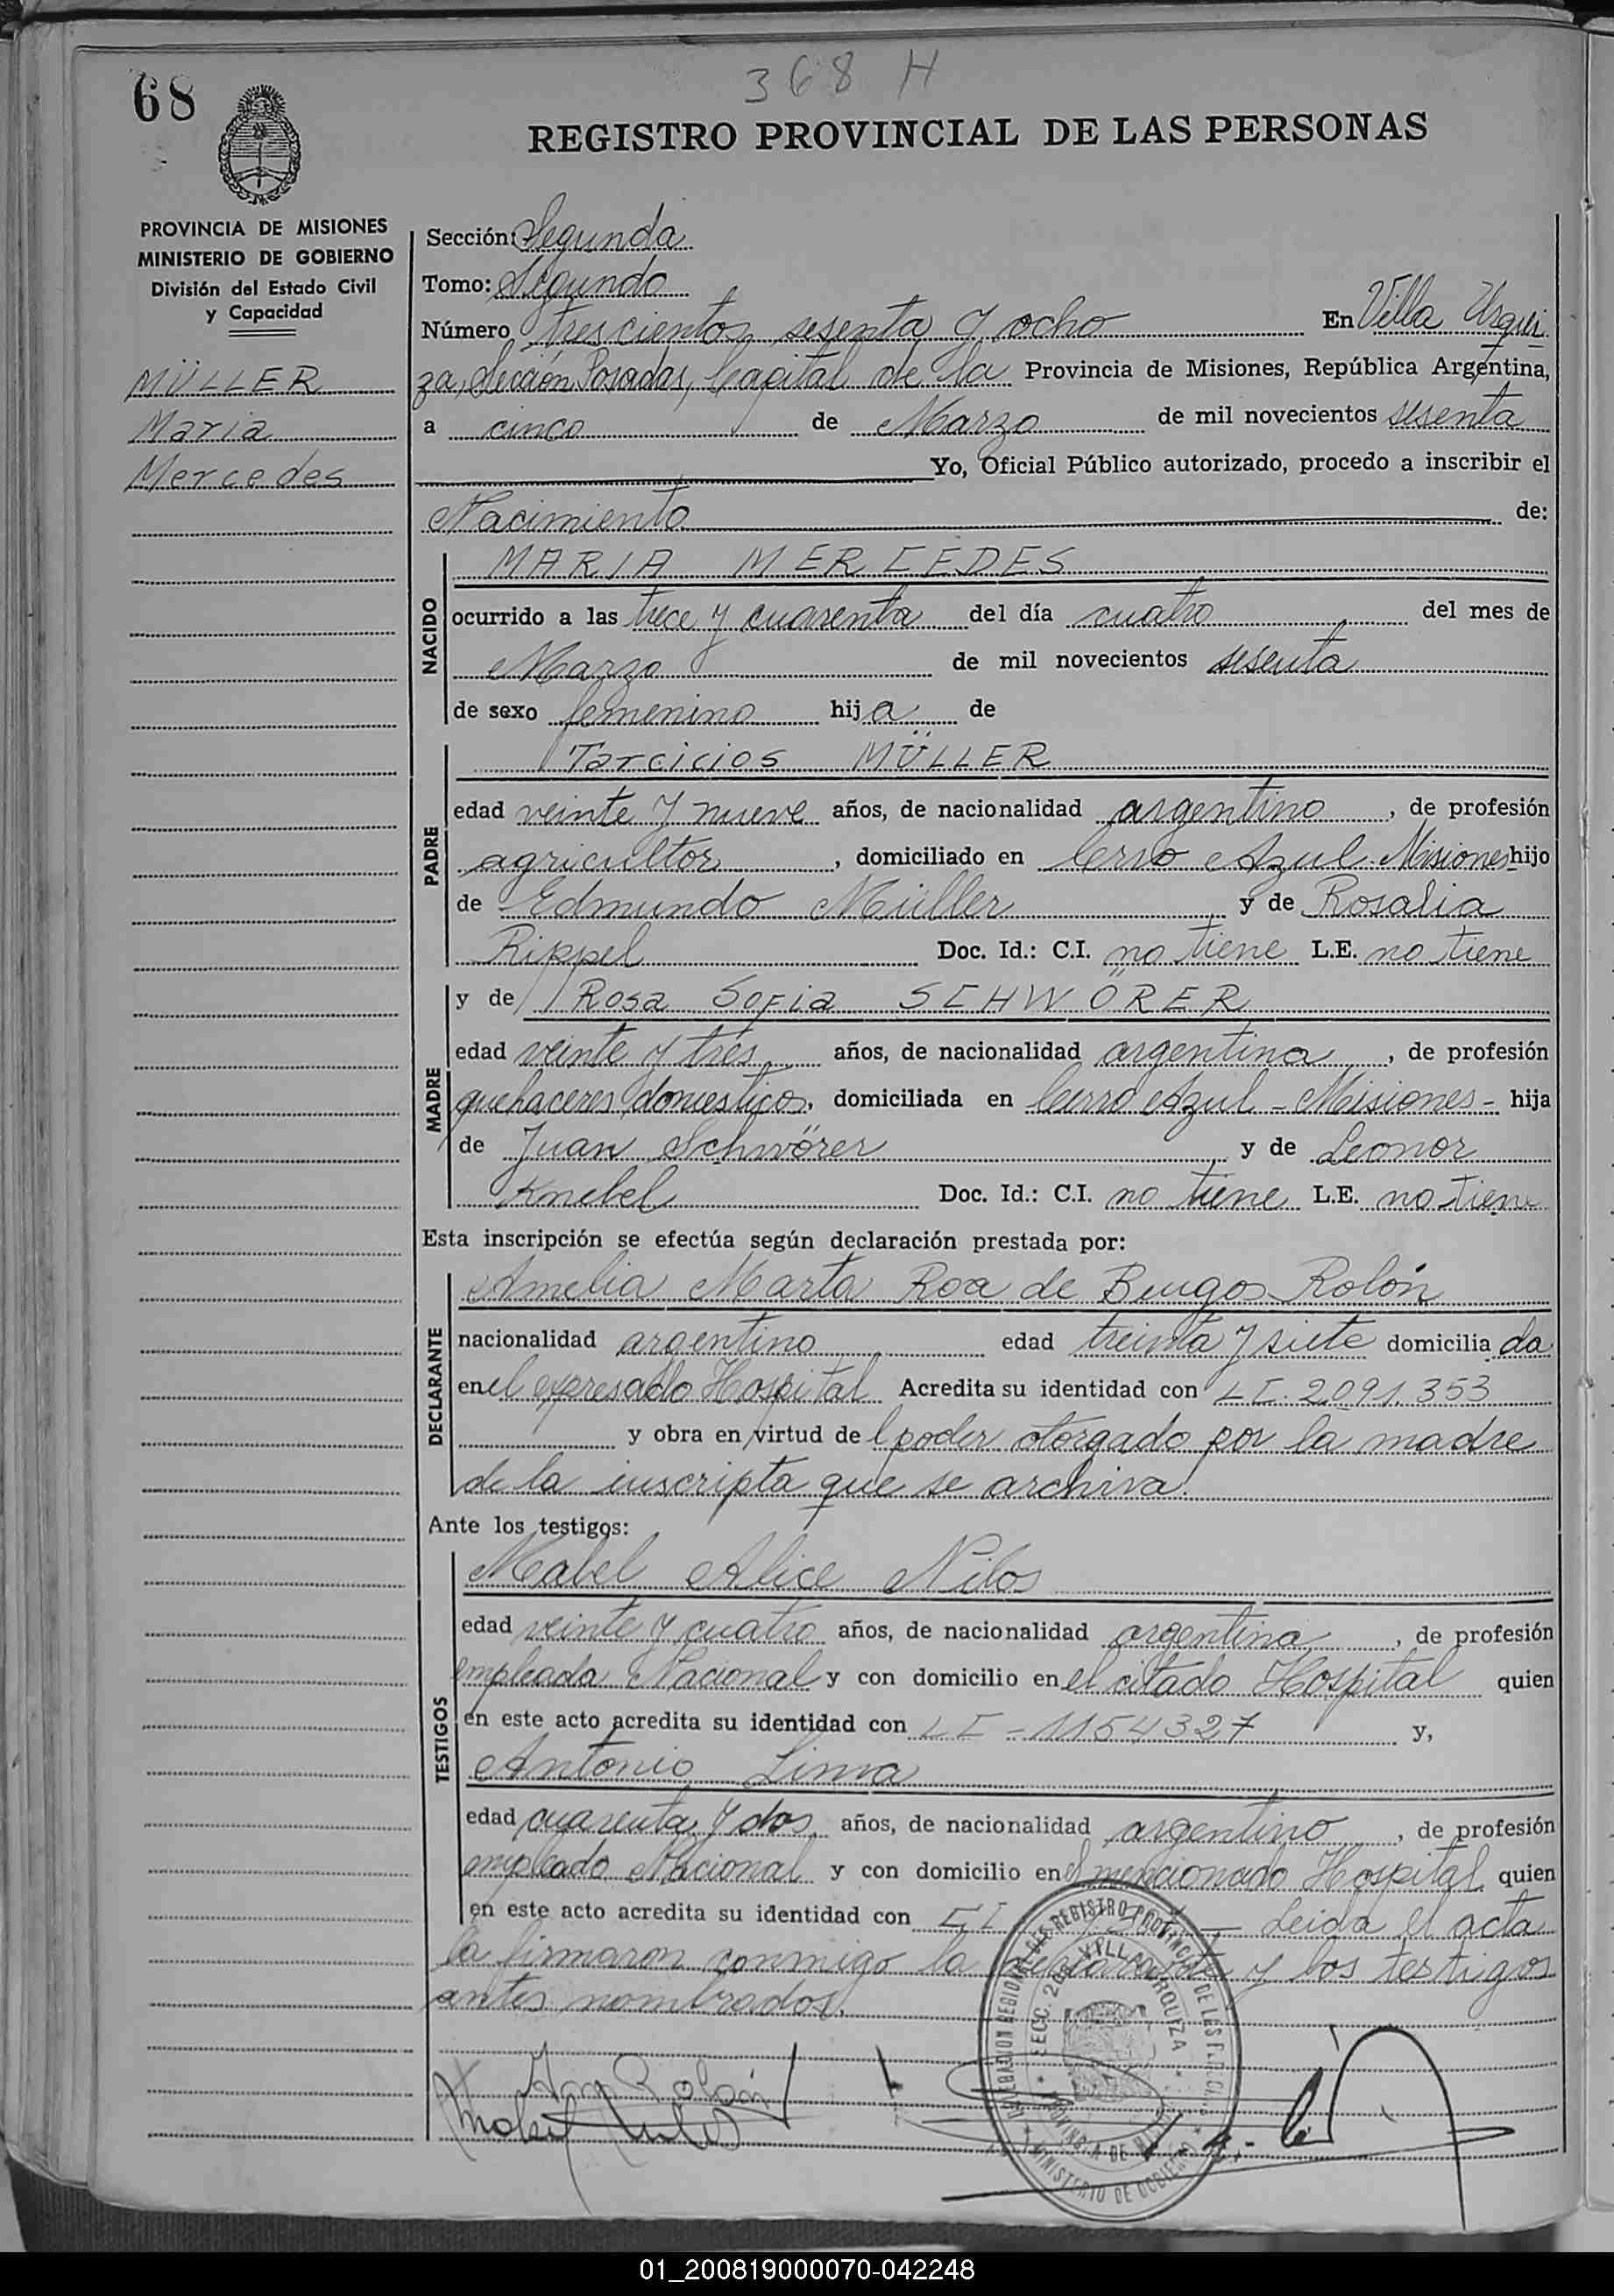 368 H
68
REGISTRO PROVINCIAL DE LAS PERSONAS
PROVINCIA DE MISIONES
MINISTERIO DE GOBIERNO
División del Estado Civil
y Capacidad
MÜLLER
Maria
Mercedes
Sección: Segunda
Tomo: Segundo
Número trescientos sesenta y ocho En Villa Urqui
za, Sección Posadas, Capital de la Provincia de Misiones, República Argentina,
a cinco de Marzo de mil novecientos sesenta
Yo, Oficial Público autorizado, procedo a inscribir el
Nacimiento de:
NACIDO
MARIA MERCEDES
ocurrido a las trece y cuarenta del día cuatro del mes de
Marzo de mil novecientos sesenta
de sexo femenino hija de
PADRE
Tarcicios MÜLLER
edad veinte y nueve años, de nacionalidad argentino, de profesión
agricultor, domiciliado en Cerro Azul Misiones hijo
de Edmundo Müller y de Rosalia
Rippel Doc. Id.: C.I. no tiene L.E. no tiene
MADRE
y de Rosa Sofia SCHWÖRER
edad veinte y tres años, de nacionalidad argentina, de profesión
quehaceres domesticos, domiciliada en Cerro Azul - Misiones - hija
de Juan Schwörer y de Leonor
Knebel Doc. Id.: C.I. no tiene L.E. no tiene
Esta inscripción se efectúa según declaración prestada por:
DECLARANTE
Amelia Marta Roa de Burgos Rolón
nacionalidad argentino edad treinta y siete domiciliada
en el expresado Hospital Acredita su identidad con LC. 2.091.353
y obra en virtud del poder otorgado por la madre
de la inscripta que se archiva.
Ante los testigos:
TESTIGOS
Mabel Alice Nilos
edad veinte y cuatro años, de nacionalidad argentina, de profesión
empleada Nacional y con domicilio en el citado Hospital quien
en este acto acredita su identidad con LC - 1154327 y,
Antonio Lima
edad cuarenta y dos años, de nacionalidad argentino, de profesión
empleado Nacional y con domicilio en el mencionado Hospital quien
en este acto acredita su identidad con Leida el acta
la firmaron conmigo la declarante y los testigos
antes nombrados.
DELEGACION REGIONAL DEL REGISTRO PROVINCIAL DE LAS PERSONAS
SECC. 2da VILLA URQUIZA
PROVINCIA DE MISIONES
MINISTERIO DE GOBIERNO
01_200819000070-042248